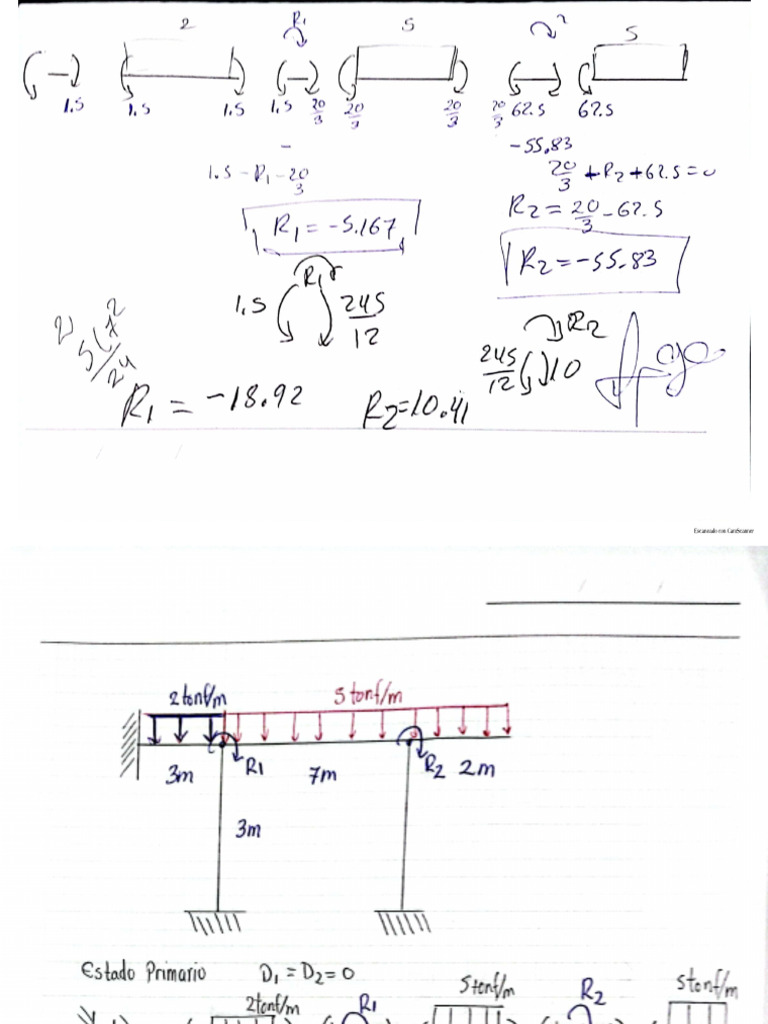 2 R₁ 5 ? 5
1.5 1.5 1.5 1.5 20/3 20/3 20/3 20/3 62.5 62.5
1.5 - R₁ - 20/3
R₁ = -5.167
-55.83
20/3 + R₂ + 62.5 = 0
R₂ = 20/3 - 62.5
R₂ = -55.83
R₁
1.5 245/12
R₂
245/12 10
5(7²/24
R₁ = -18.92 R₂=10.41
Escaneado con CamScanner
2tonf/m 5tonf/m
3m R1 7m R2 2m
3m
Estado Primario D₁ = D₂ = 0
2tonf/m R1 5tonf/m R2 5tonf/m